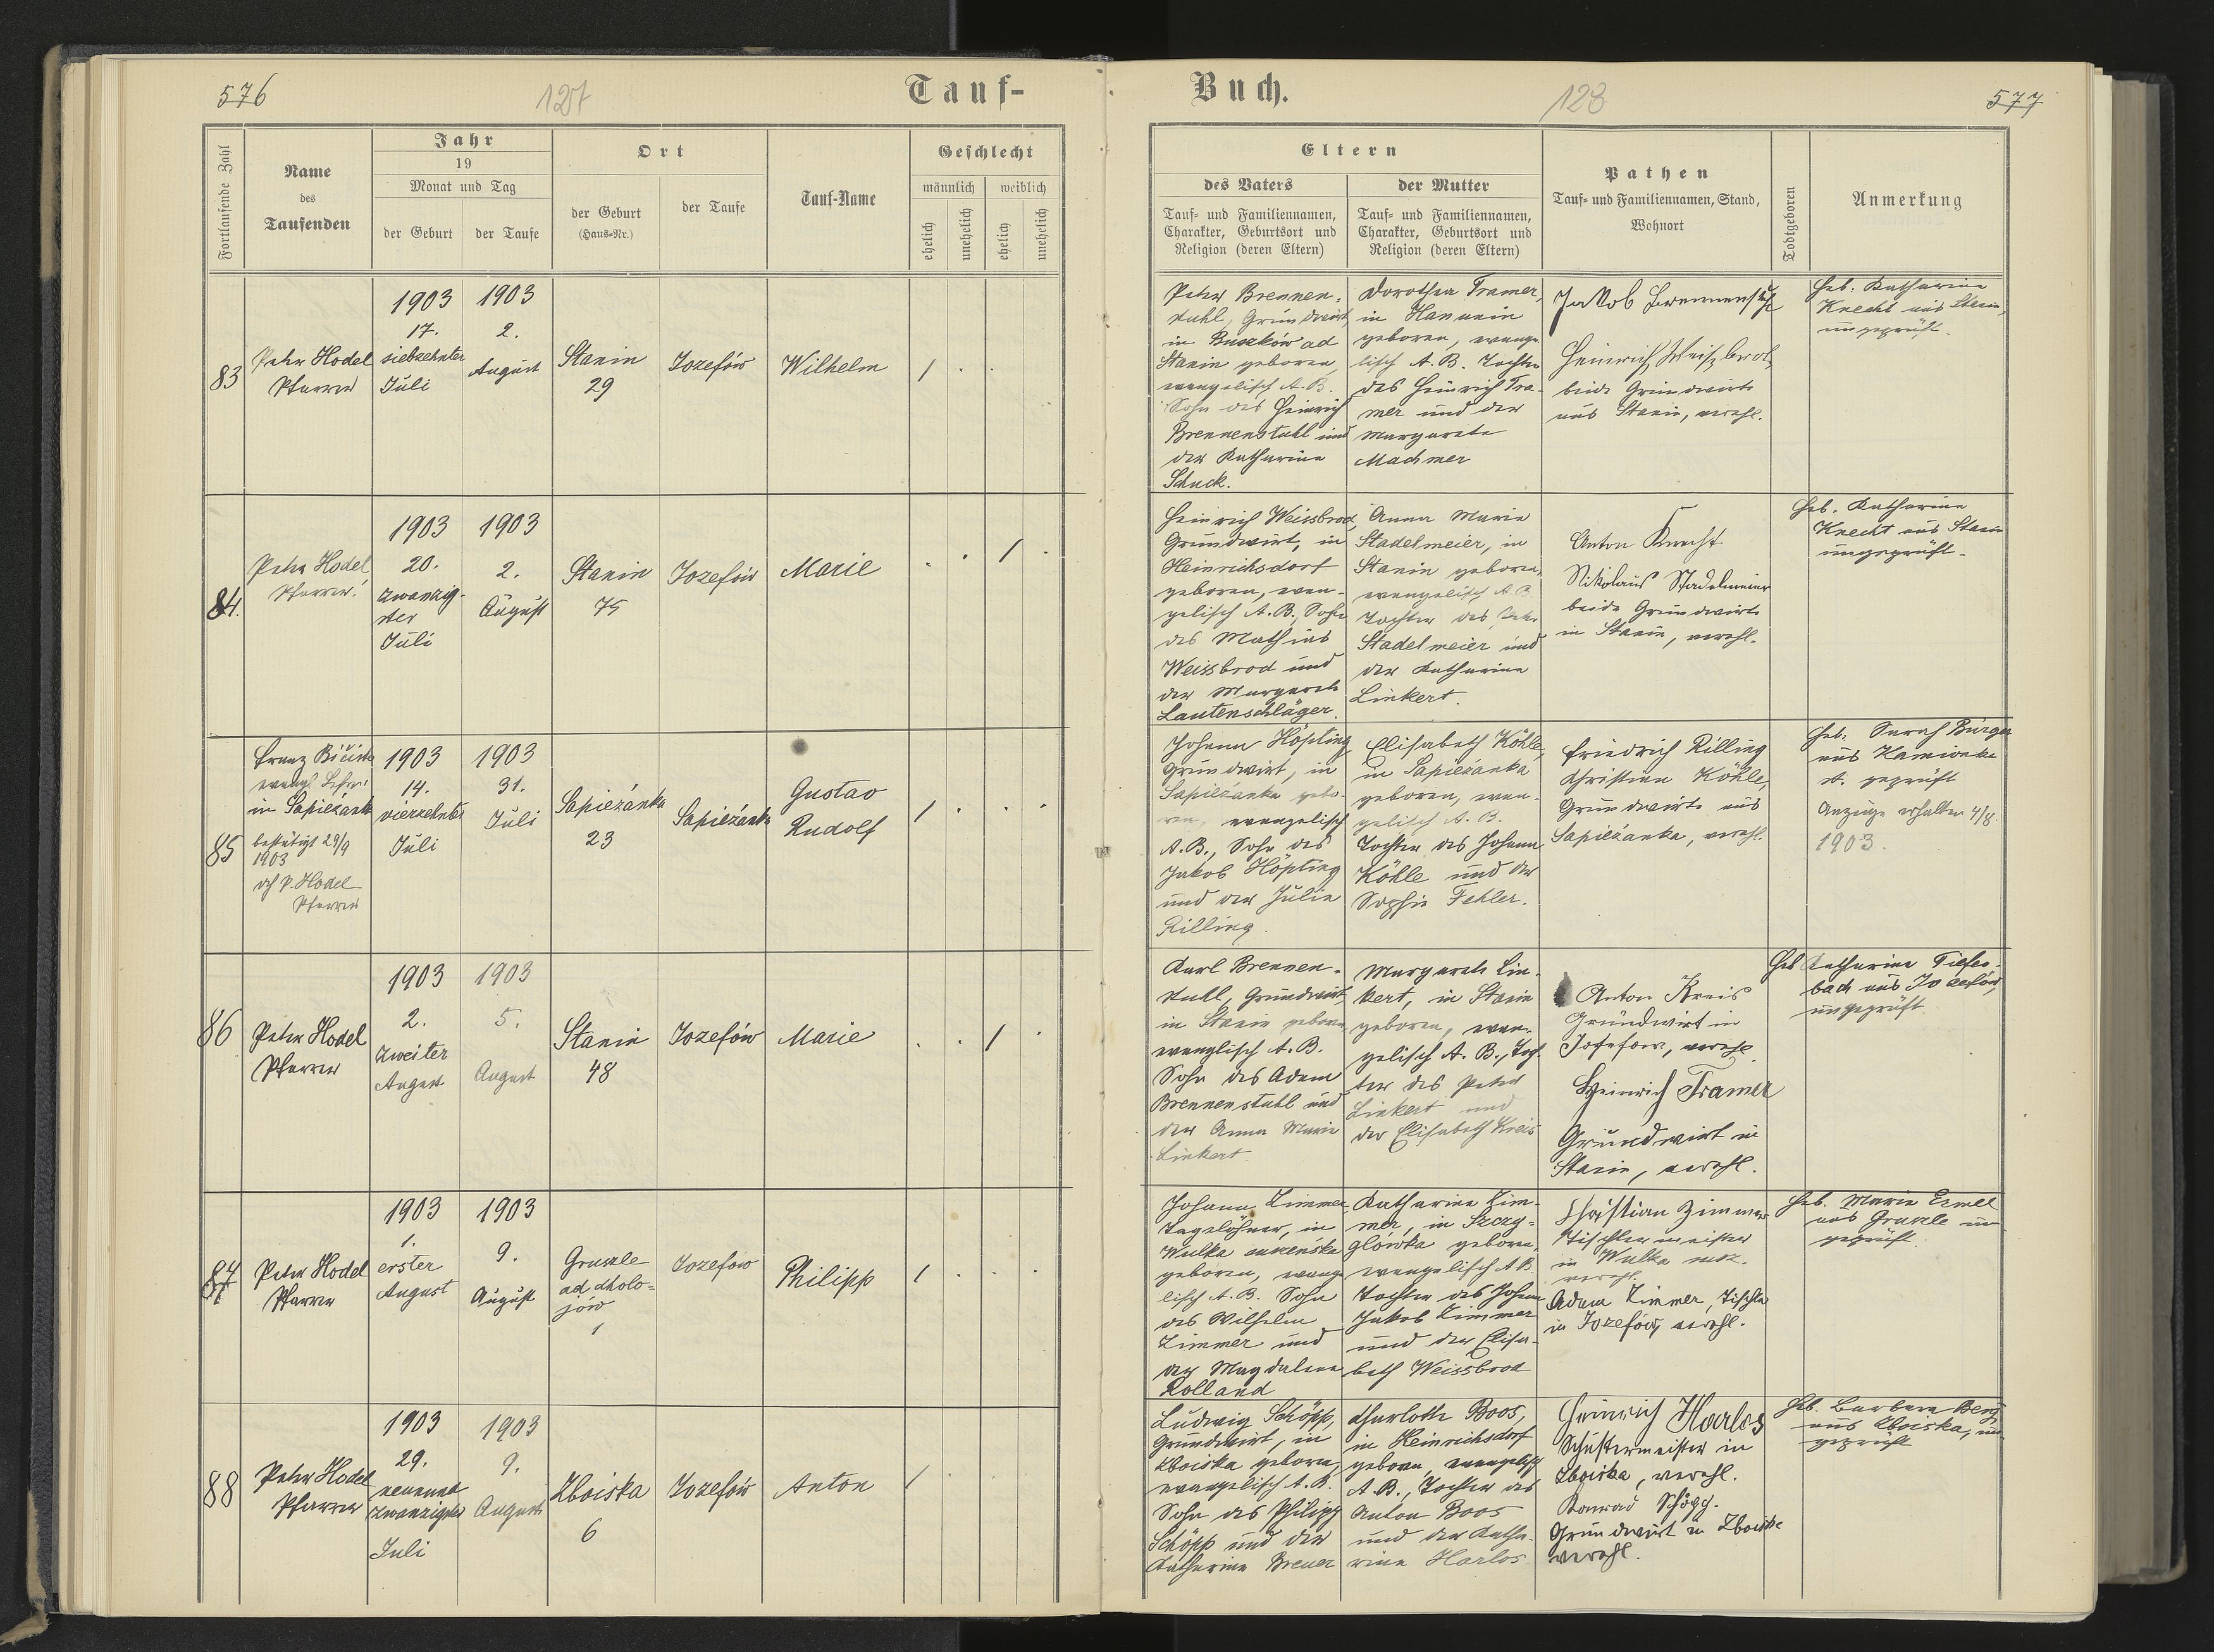 576
127
Tauf-
Fortlaufende Zahl
Name
des
Taufenden
Jahr
19
Monat und Tag
der Geburt
der Taufe
Ort
der Geburt
(Haus-Nr.)
der Taufe
Tauf-Name
Geschlecht
männlich
weiblich
ehelich
unehelich
ehelich
unehelich
83
Peter Hodel
Pfarrer
1903
17.
siebzehnter
Juli
1903
2.
August
Stanin
29
Jozefów
Wilhelm
84.
Peter Hodel,
Pfarrer.
1903
20.
zwanzig-
ster
Juli
1903
2.
August
Stanin
75
Jozefów
Marie
85
Franz
evang. Lehrer
in Sapieżanka
bestätigt 29/9
1903
P. Hodel
Pfarrer
1903
14.
vierzehnter
Juli
1903
31.
Juli
Sapieżanka
23
Sapieżanka
Gustav
Rudolf
86
Peter Hodel
Pfarrer
1903
2.
zweiter
August
1903
5.
August
Stanin
48
Jozefów
Marie
87
Peter Hodel
Pfarrer
1903
1.
erster
August
1903
9.
August
Gruszle
ad Cholo-
jów
1
Jozefow
Philipp
88
Peter Hodel
Pfarrer
1903
29.
neunund
zwanzigster
Juli
1903
9.
August
Zboiska
6
Jozefów
Anton
Buch.
128
577
Eltern
des Vaters
Tauf- und Familiennamen,
Charakter, Geburtsort und
Religion (deren Eltern)
der Mutter
Tauf- und Familiennamen,
Charakter, Geburtsort und
Religion (deren Eltern)
Pathen
Tauf- und Familiennamen, Stand,
Wohnort
Todtgeboren
Anmerkung
Peter Brennen-
stuhl, Grundwirt,
in Buszków ad
Stanin geboren,
evangelisch A. B.
Sohn des Heinrich
Brennenstuhl und
der Katharina
Schuck.
Dorothea Tramer,
in Hanunin
geboren, evange-
lisch A. B. Tochter
des Heinrich Tra-
mer und der
Margareta
Machmer
Jakob Brennenstuhl
Heinrich Weißbrod,
beide Grundwirte
aus Stanin, verehl.
Heb. Katharina
Knecht aus Stanin,
ungeprüft.
Heinrich Weissbrod,
Grundwirt, in
Heinrichsdorf
geboren, evan-
gelisch A. B., Sohn
des Mathias
Weissbrod und
der Margareta
Lautenschläger.
Anna Maria
Stadelmeier, in
Stanin geboren,
evangelisch A. B.
Tochter des Peter
Stadelmeier und
der Katharina
Linkert.
Anton Knecht
Nikolaus Stadelmeier
beide Grundwirte
in Stanin, verehl.
Heb. Katharina
Knecht aus Stanin
ungeprüft.
Johann Höpting
Grundwirt, in
Sapieżanka gebo-
ren, evangelisch
A. B., Sohn des
Jakob Höpting
und der Julia
Rilling.
Elisabeth Köhle,
in Sapieżanka
geboren, evan-
gelisch A. B.
Tochter des Johann
Köhle und der
Sophie Fehler.
Friedrich Rilling
Christian Köhle,
Grundwirte aus
Sapieżanka, verehl.
Heb. Sarah Bürger
aus Kamionka
st. geprüft
Anzeige erhalten 4/8.
1903.
Karl Brennen-
stuhl, Grundwirt,
in Stanin geboren
evanglisch A. B.
Sohn des Adam
Brennenstuhl und
der Anna Maria
Linkert.
Margareta Lin-
kert, in Stanin
geboren, evan-
gelisch A. B., Toch-
ter des Peter
Linkert und
der Elisabeth Kreis
Anton Kreis
Grundwirt in
Josefow, verehl
Heinrich Tramer
Grundwirt in
Stanin, verehl.
Heb. Katharina Tiefen-
bach aus Jozefów,
ungeprüft
Johann Zimmer,
Tagelöhner, in
Wulka suszeńska
geboren, evange-
lisch A. B. Sohn
des Wilhelm
Zimmer und
der Magdalena
Rolland
Katharina Zim-
mer, in Szczy-
główka geboren,
evangelisch A. B.
Tochter des Johann
Jakob Zimmer
und der Elisa-
beth Weissbrod
Christian Zimmer
Tischlermeister
in Wulka
verehl.
Adam Zimmer, Tischler
in Jozefów, verehl.
Heb. Maria Ermel
aus Gruszle un-
geprüft.
Ludwig Schöpp,
Grundwirt, in
Zboiska geboren,
evangelisch A. B.
Sohn des Philipp
Schöpp und der
Katharina Breuer
Charlotte Boos,
in Heinrichsdorf
geboren, evangelisch
A. B., Tochter des
Anton Boos
und der Katha-
rina Harlos
Heinrich Harlos
Schustermeister in
Zboiska, verehl.
Konrad Schöpp.
Grundwirt in Zboiska
verehl.
Heb. Barbara
aus Zboiska, un-
geprüft